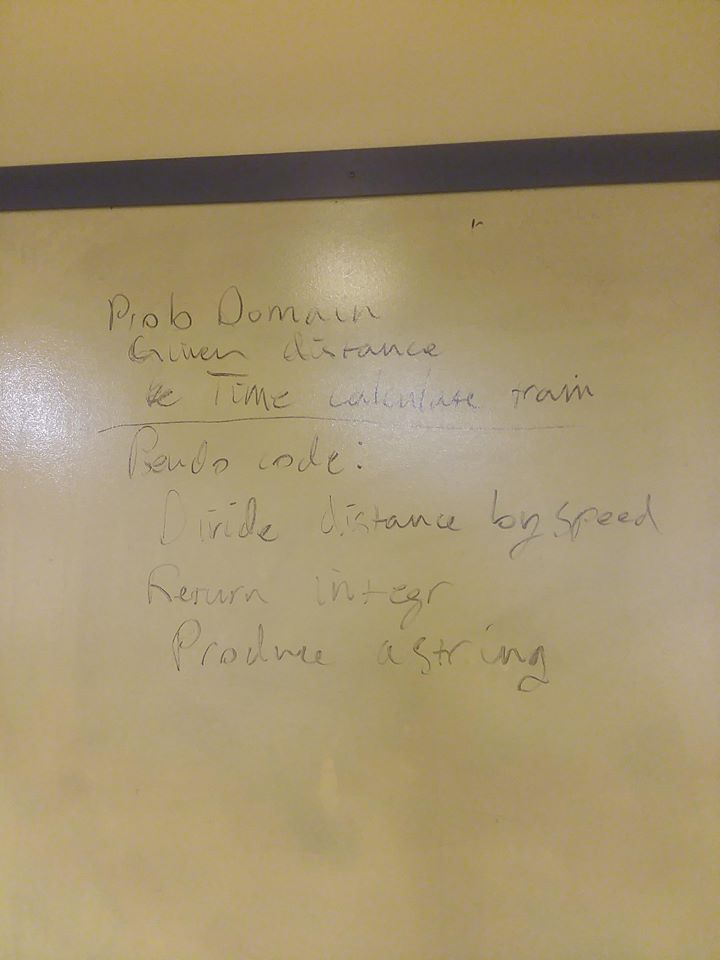 Prob Domain
Given distance
& Time calculate train
Psudo code:
Divide distance by speed
Return integr
Produce a string